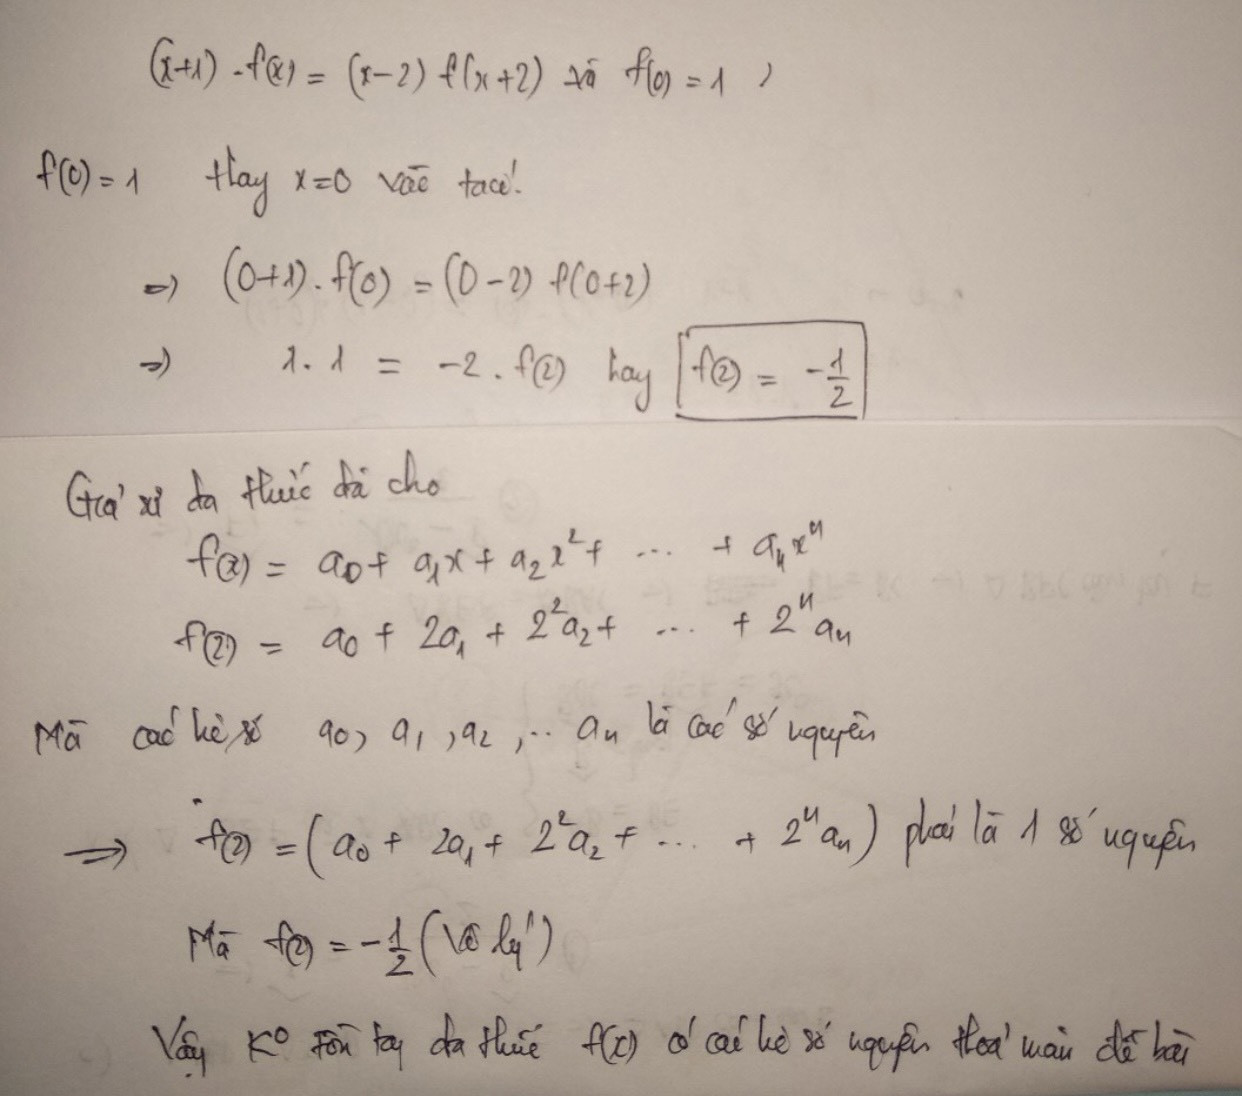 (x+1) . f(x) = (x-2) f(x+2) và f(0) = 1 ,
f(0) = 1 thay x=0 vào ta có:
=> (0+1) . f(0) = (0-2) f(0+2)
=> 1 . 1 = -2 . f(2) hay f(2) = -1/2
Giả sử đa thức đã cho
f(x) = a₀ + a₁x + a₂x² + ... + aₙxⁿ
f(2) = a₀ + 2a₁ + 2²a₂ + ... + 2ⁿaₙ
Mà các hệ số a₀, a₁, a₂, .. aₙ là các số nguyên
=> f(2) = (a₀ + 2a₁ + 2²a₂ + ... + 2ⁿaₙ) phải là 1 số nguyên
Mà f(2) = -1/2 (vô lý)
Vậy K⁰ tồn tại đa thức f(x) có các hệ số nguyên thoả mãn đề bài